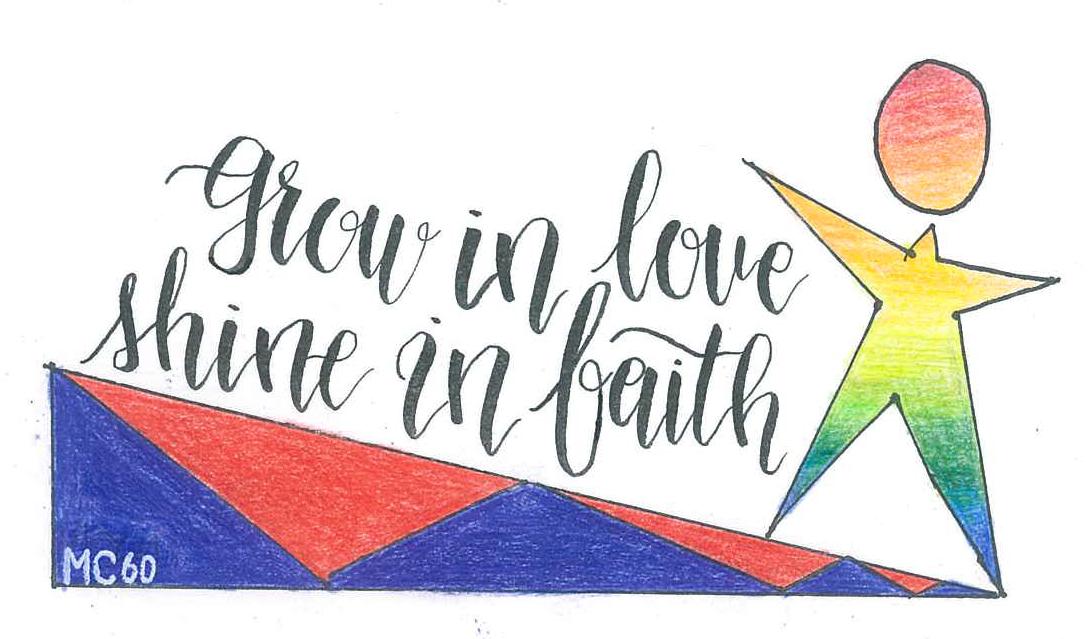 Grow in love
shine in faith
MC60